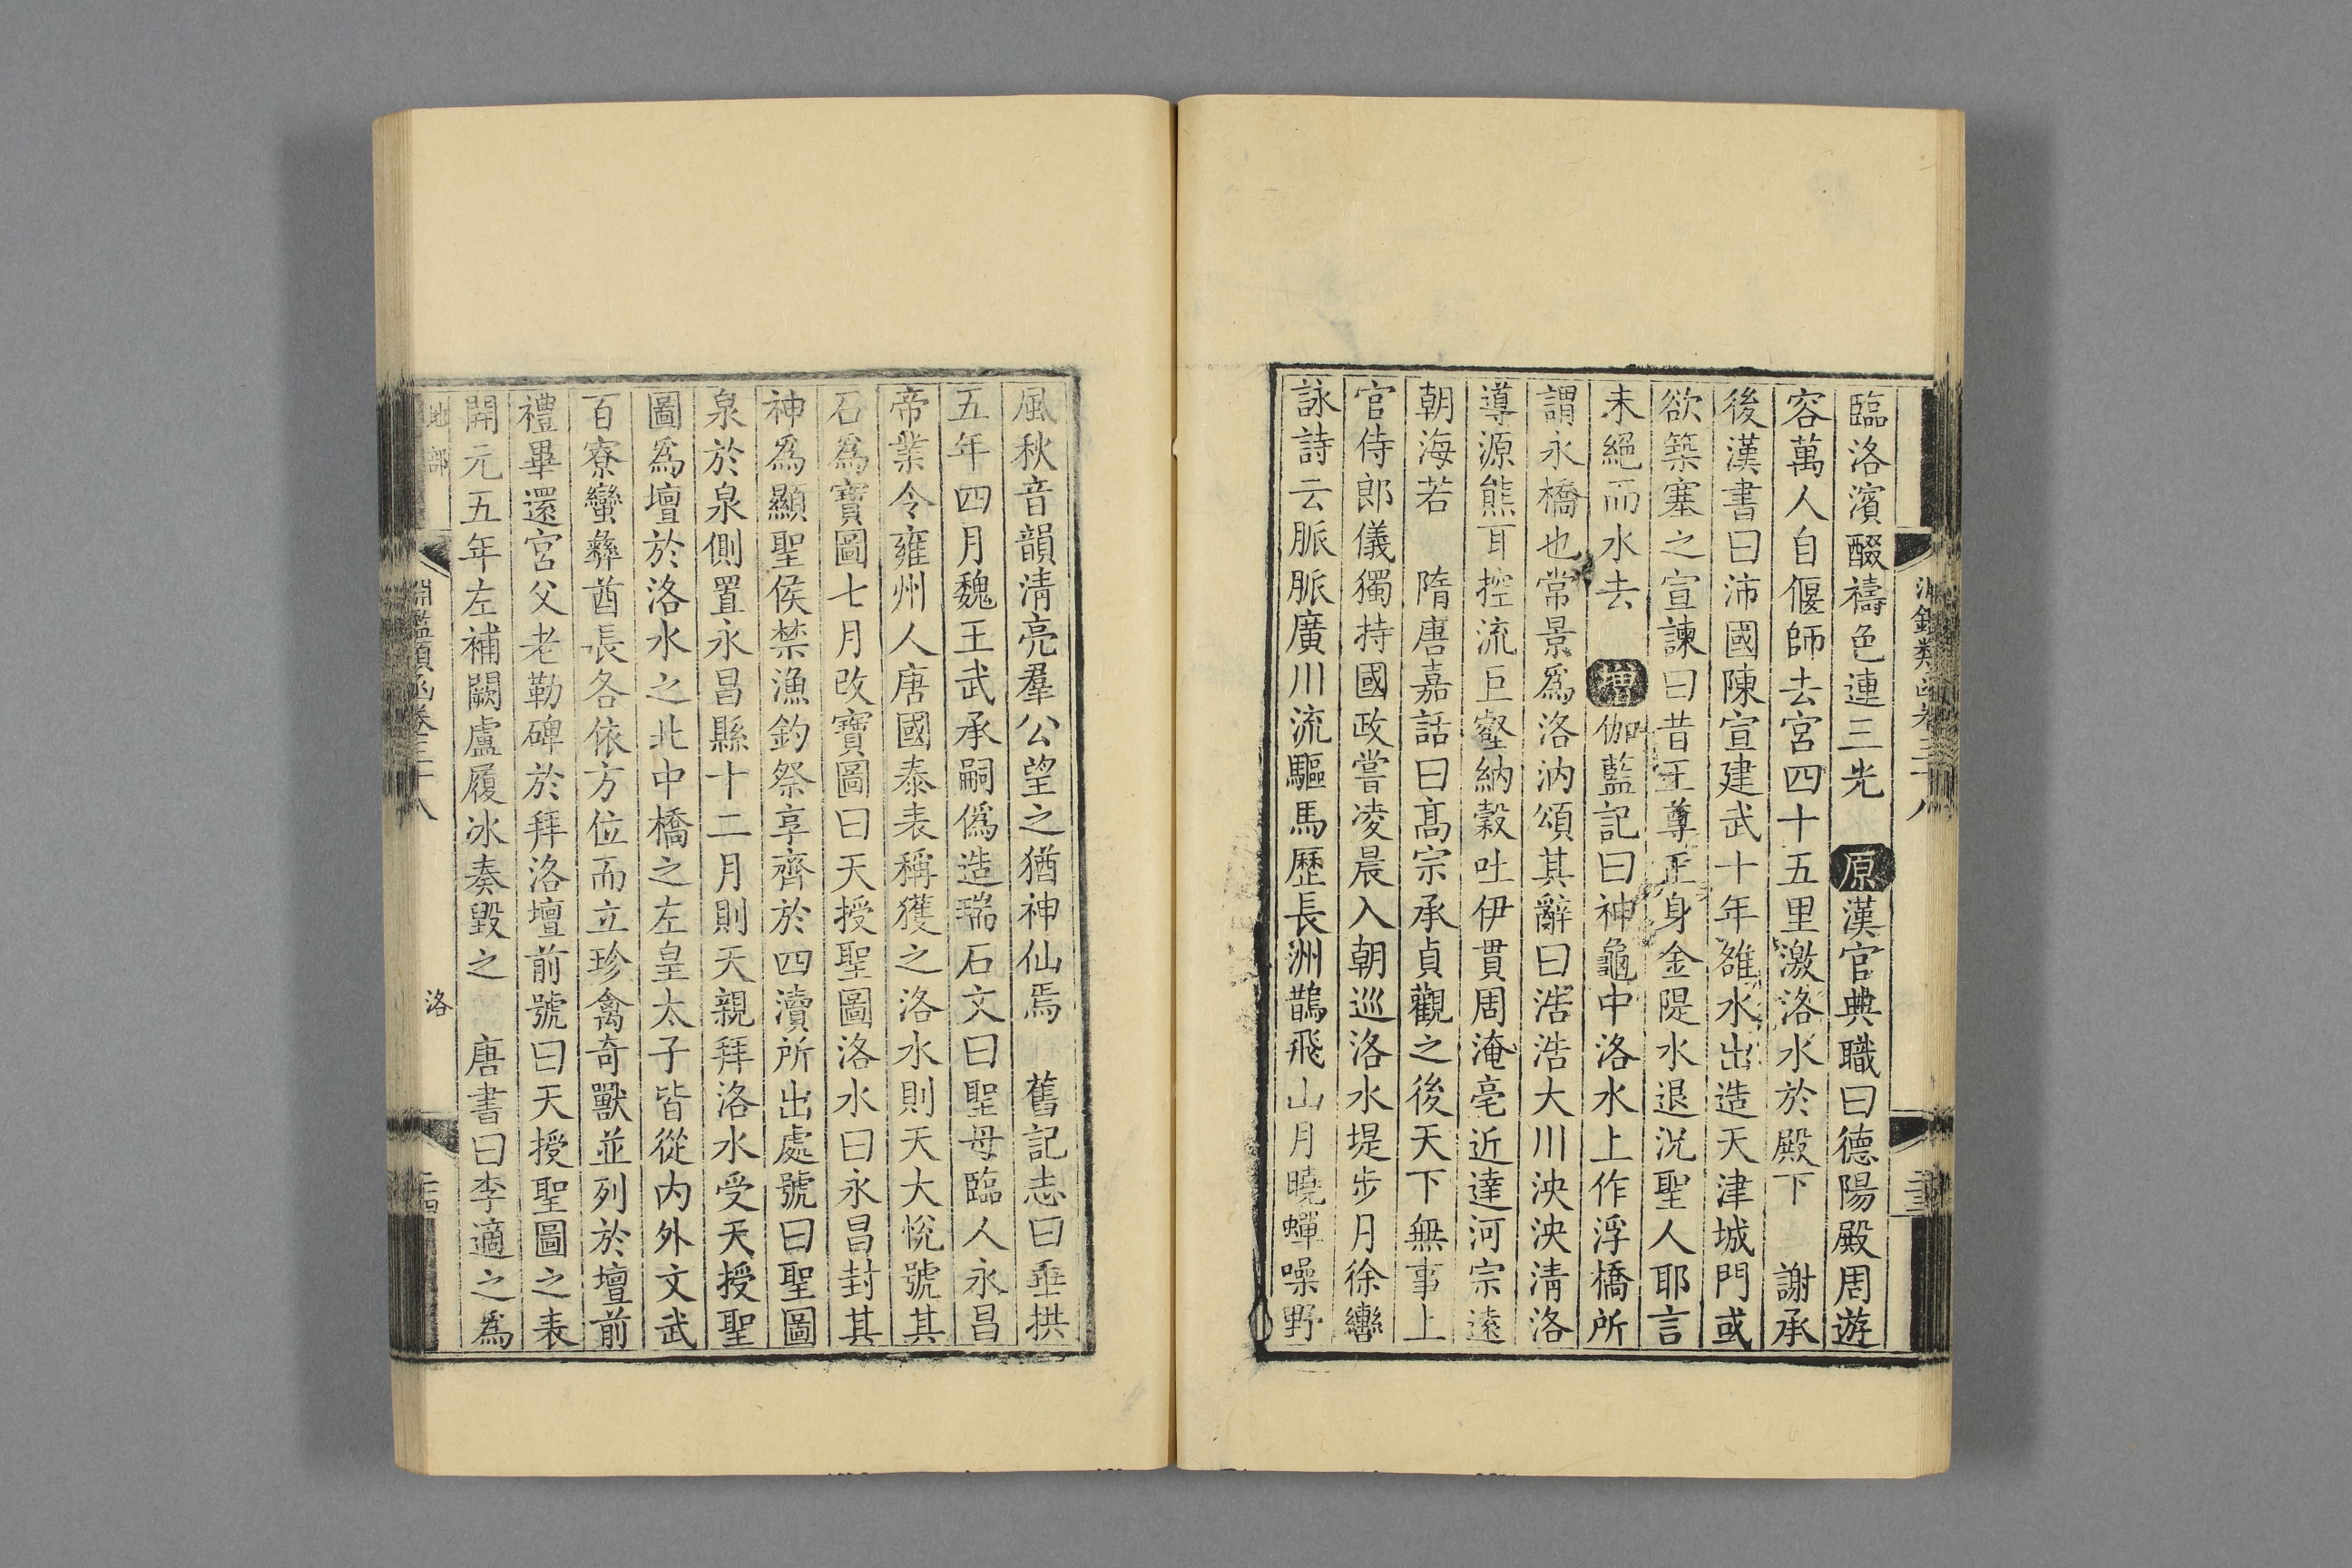 臨洛濱醊禱色連三光　原漢官典職曰德陽殿周遊
容萬人自偃師去宮四十五里激洛水於殿下　謝承
後漢書曰沛國陳宣建武十年雒水出造天津城門或
欲築塞之宣諫曰昔王尊正身金隄水退況聖人耶言
未絕而水去　增伽藍記曰神龜中洛水上作浮橋所
謂永橋也常景爲洛汭頌其辭曰浩浩大川泱泱淸洛
導源熊耳控流巨壑納穀吐伊貫周淹亳近達河宗遠
朝海若　隋唐嘉話曰高宗承貞觀之後天下無事上
官侍郎儀獨持國政嘗凌晨入朝巡洛水堤步月徐轡
詠詩云脈脈廣川流驅馬歷長洲鵲飛山月曉蟬噪野
風秋音韻淸亮羣公望之猶神仙焉　舊記志曰垂拱
五年四月魏王武承嗣僞造瑞石文曰聖母臨人永昌
帝業令雍州人唐國泰表稱獲之洛水則天大悅號其
石爲寶圖七月改寶圖曰天授聖圖洛水曰永昌封其
神爲顯聖侯禁漁釣祭享齊於四瀆所出處號曰聖圖
泉於泉側置永昌縣十二月則天親拜洛水受天授聖
圖爲壇於洛水之北中橋之左皇太子皆從內外文武
百寮蠻彝酋長各依方位而立珍禽奇獸並列於壇前
禮畢還宮父老勒碑於拜洛壇前號曰天授聖圖之表
開元五年左補闕盧履冰奏毀之　唐書曰李適之爲
地部
淵鑑類函卷三十八
洛